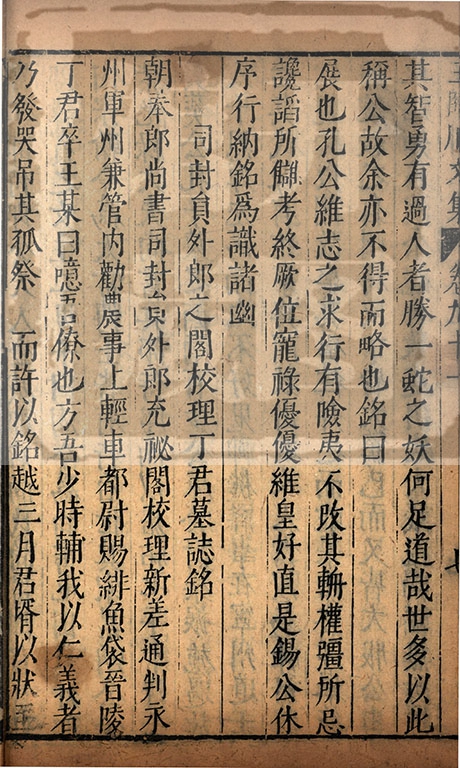 王臨川文集 卷九十一 七
其智勇有過人者勝一蛇之妖何足道哉世多以此
稱公故余亦不得而略也銘曰
展也孔公維志之求行有險夷不改其輈權彊所忌
讒諂所讎考終厥位寵祿優優維皇好直是錫公休
序行納銘爲識諸幽
司封員外郎之閣校理丁君墓誌銘
朝奉郎尚書司封員外郎充祕閣校理新差通判永
州軍州兼管内勸農事上輕車都尉賜緋魚袋晉陵
丁君卒王某曰噫吾僚也方吾少時輔我以仁義者
乃發哭吊其孤祭 而許以銘越三月君壻以狀至